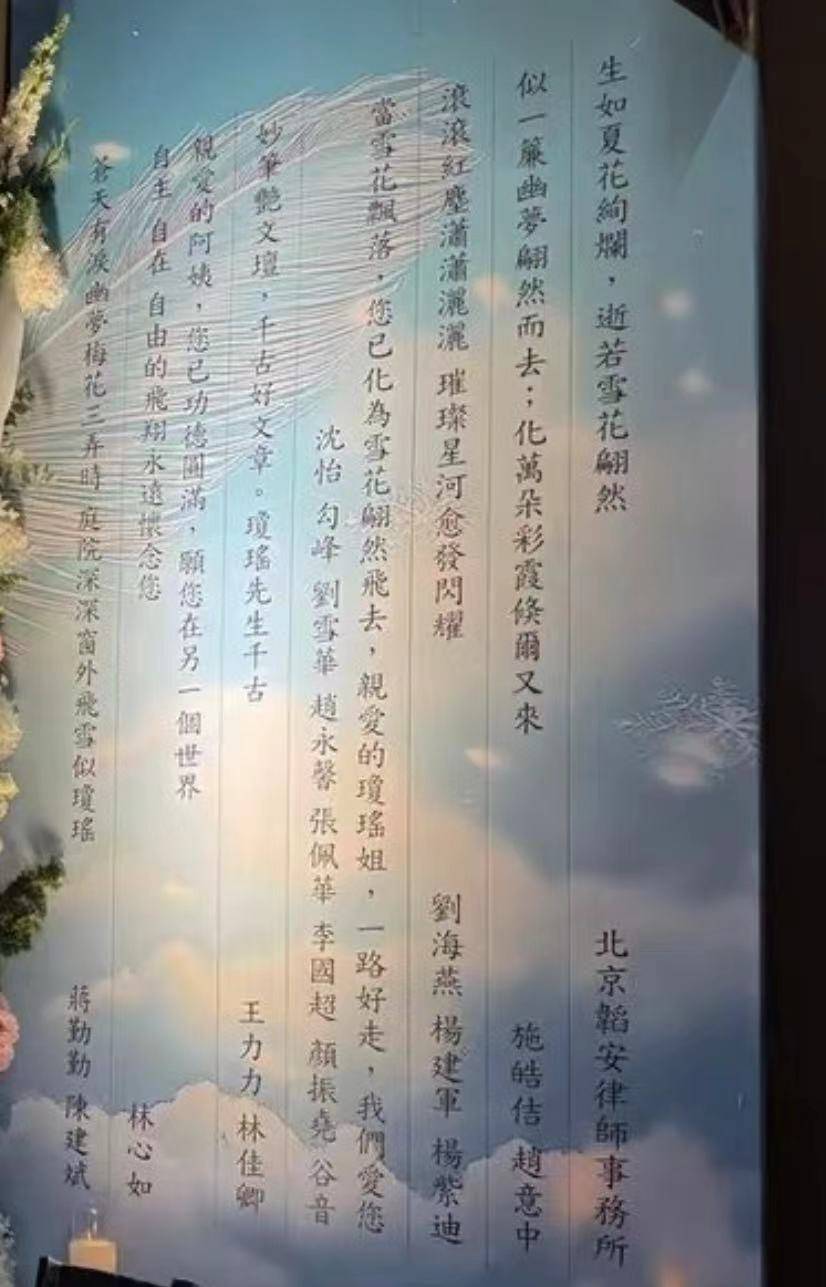 生如夏花絢爛，逝若雪花翩然
北京韜安律師事務所
似一簾幽夢翩然而去；化萬朵彩霞倏爾又來
施皓佶 趙意中
滾滾紅塵瀟瀟灑灑 璀璨星河愈發閃耀
劉海燕 楊建軍 楊紫迪
當雪花飄落，您已化為雪花翩然飛去，親愛的瓊瑤姐，一路好走，我們愛您
沈怡 勾峰 劉雪華 趙永馨 張佩華 李國超 顏振堯 谷音
妙筆艷文壇，千古好文章。瓊瑤先生千古
王力力 林佳卿
親愛的阿姨，您已功德圓滿，願您在另一個世界
自主 自在 自由的飛翔永遠懷念您
林心如
蒼天有淚幽夢梅花三弄時 庭院深深窗外飛雪似瓊瑤
蔣勤勤 陳建斌